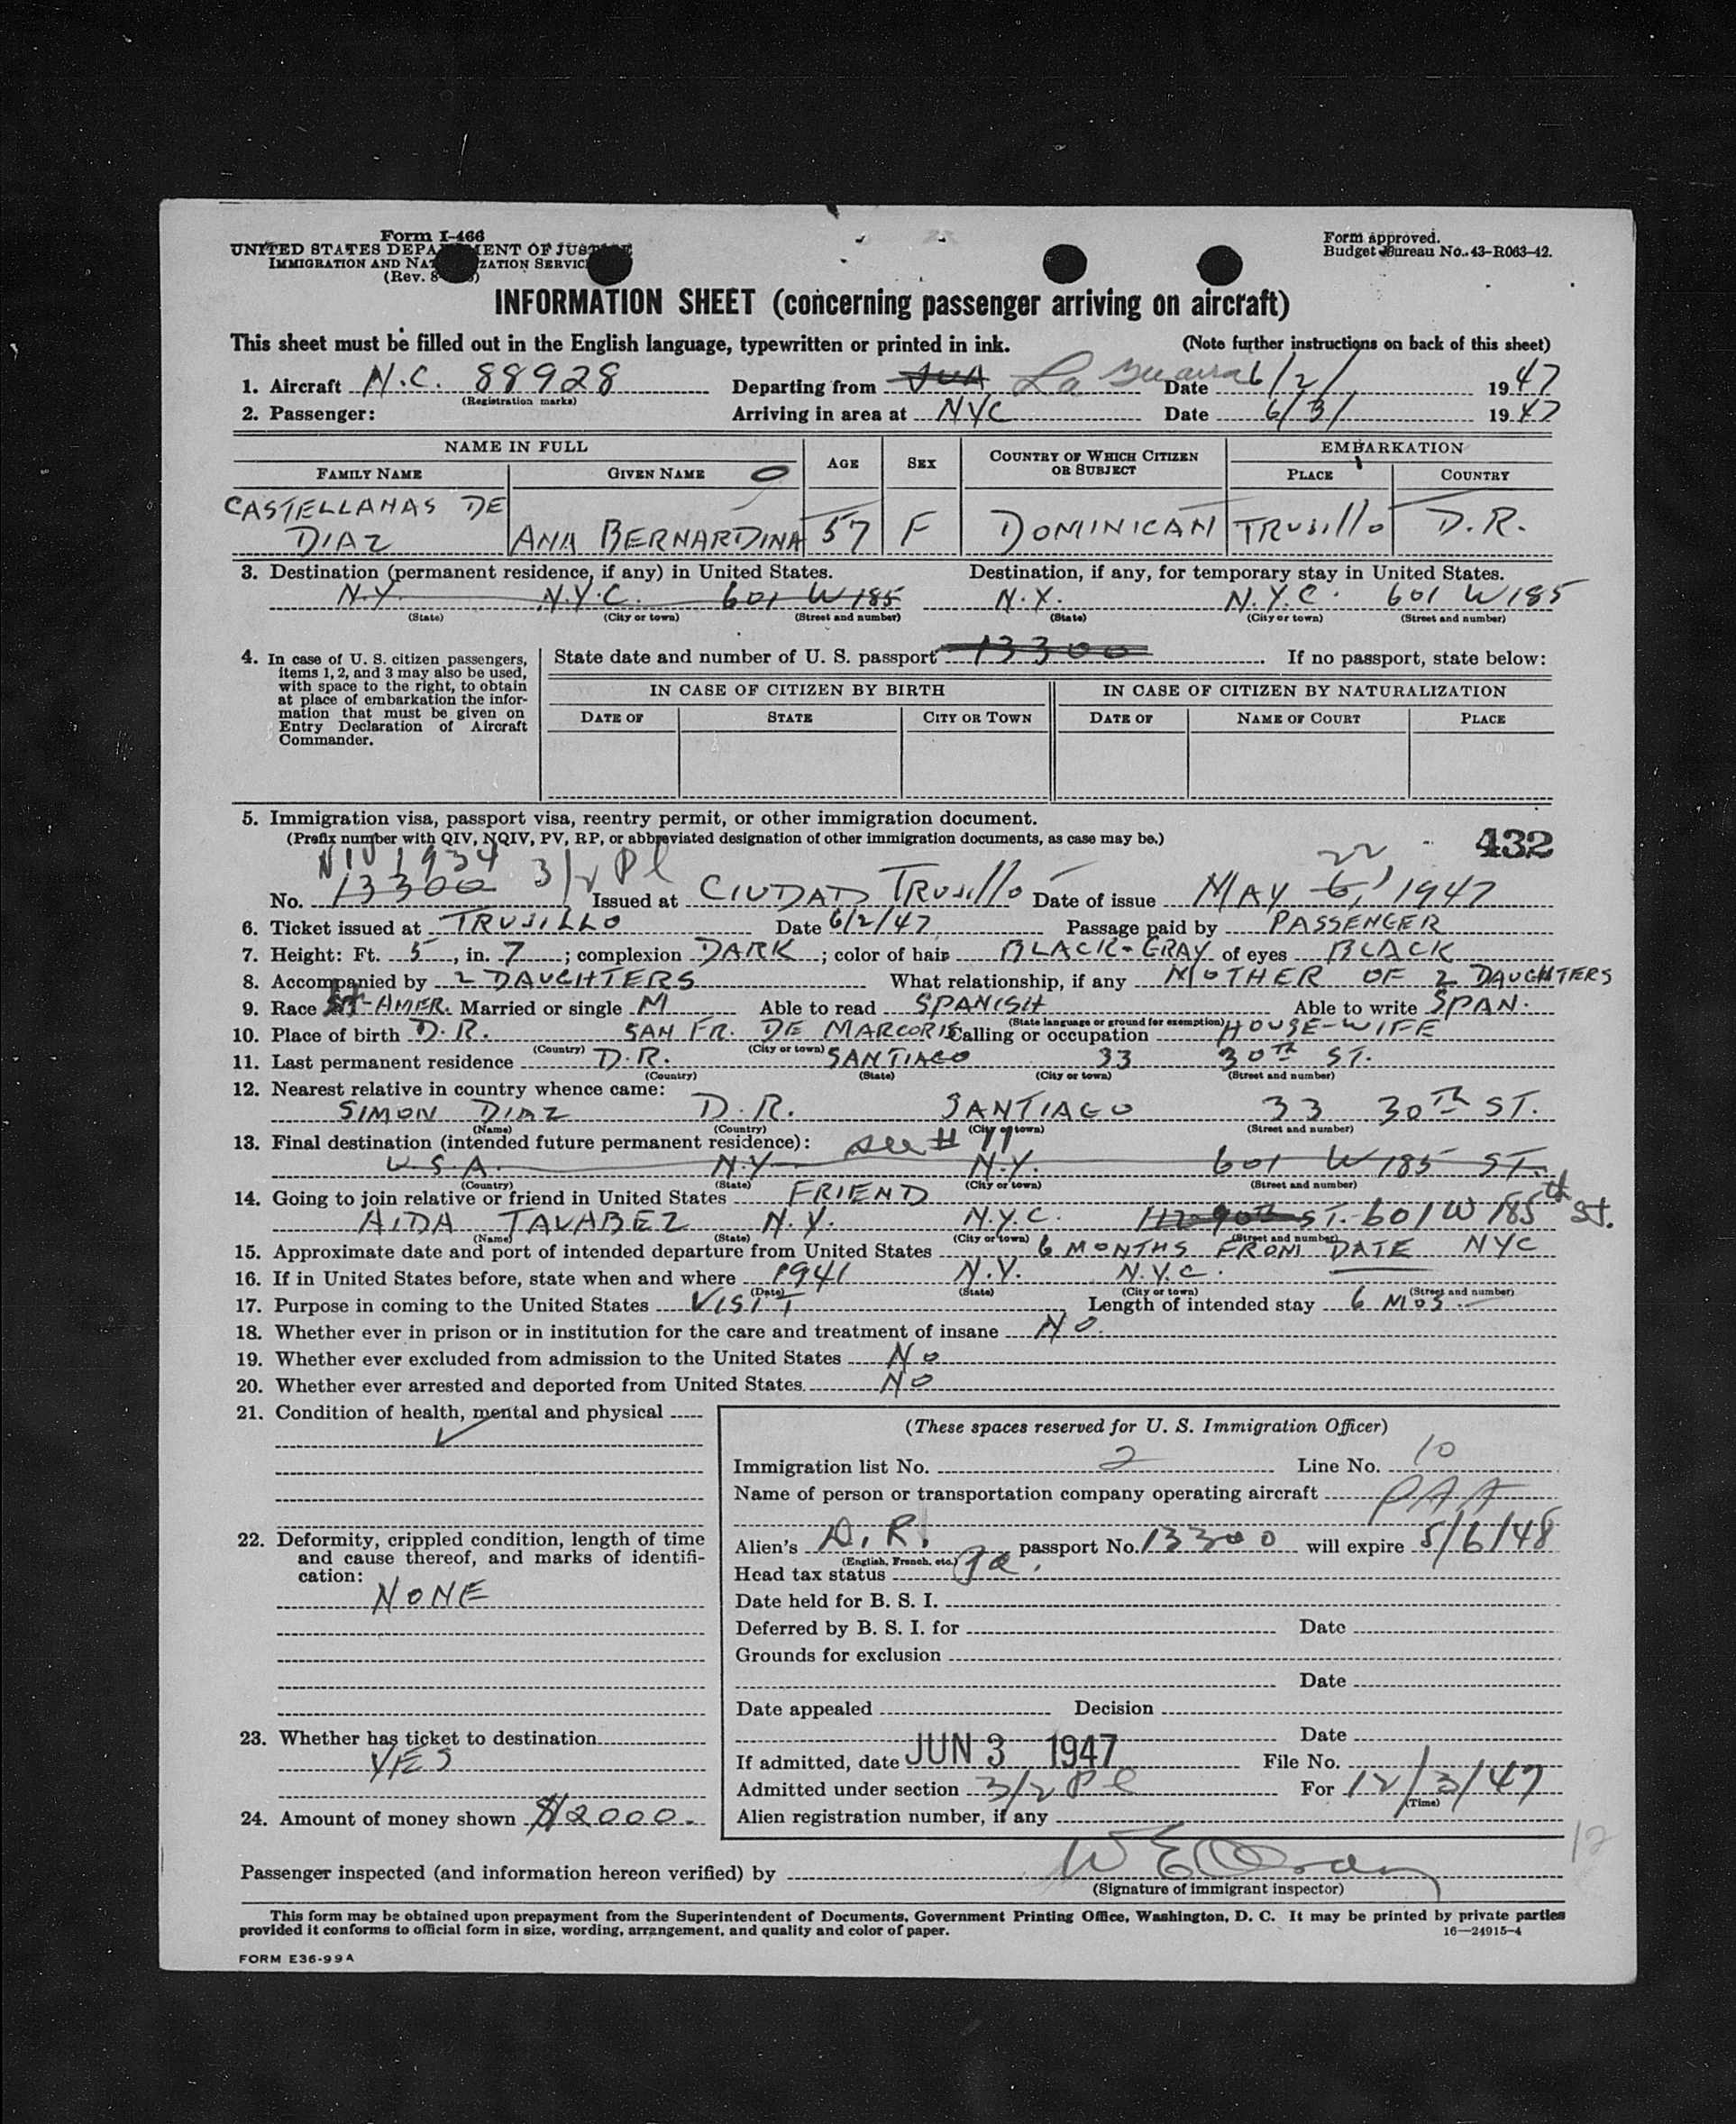 Form I-466
UNITED STATES DEPARTMENT OF JUSTICE
IMMIGRATION AND NATURALIZATION SERVICE
(Rev. 8
Form approved.
Budget Bureau No. 43-R063-42.
INFORMATION SHEET (concerning passenger arriving on aircraft)
This sheet must be filled out in the English language, typewritten or printed in ink. (Note further instructions on back of this sheet)
1. Aircraft N.C. 88928 Departing from La Guaira Date 6/2/ 1947
(Registration marks)
2. Passenger: Arriving in area at NYC Date 6/3/ 1947
NAME IN FULL AGE SEX COUNTRY OF WHICH CITIZEN OR SUBJECT EMBARKATION
FAMILY NAME GIVEN NAME PLACE COUNTRY
CASTELLANAS DE
DIAZ ANA BERNARDINA 57 F DOMINICAN TRUJILLO D.R.
3. Destination (permanent residence, if any) in United States. Destination, if any, for temporary stay in United States.
N.Y. N.Y.C. 601 W 185 N.Y. N.Y.C. 601 W 185
(State) (City or town) (Street and number) (State) (City or town) (Street and number)
4. In case of U. S. citizen passengers, items 1, 2, and 3 may also be used, with space to the right, to obtain at place of embarkation the information that must be given on Entry Declaration of Aircraft Commander.
State date and number of U. S. passport 13300 If no passport, state below:
IN CASE OF CITIZEN BY BIRTH IN CASE OF CITIZEN BY NATURALIZATION
DATE OF STATE CITY OR TOWN DATE OF NAME OF COURT PLACE
5. Immigration visa, passport visa, reentry permit, or other immigration document.
(Prefix number with QIV, NQIV, PV, RP, or abbreviated designation of other immigration documents, as case may be.) 432
NIV 1934 3/2 Pl 22
No. 13300 Issued at CIUDAD TRUJILLO Date of issue MAY 6, 1947
6. Ticket issued at TRUJILLO Date 6/2/47 Passage paid by PASSENGER
7. Height: Ft. 5, in. 7; complexion DARK; color of hair BLACK-GRAY of eyes BLACK
8. Accompanied by 2 DAUGHTERS What relationship, if any MOTHER OF 2 DAUGHTERS
9. Race AMER. Married or single M Able to read SPANISH Able to write SPAN.
(State language or ground for exemption)
10. Place of birth D.R. SAN FR. DE MARCORIS Calling or occupation HOUSE-WIFE
(Country) (City or town)
11. Last permanent residence D.R. SANTIAGO 33 30TH ST.
(Country) (State) (City or town) (Street and number)
12. Nearest relative in country whence came:
SIMON DIAZ D.R. SANTIAGO 33 30TH ST.
(Name) (Country) (City or town) (Street and number)
13. Final destination (intended future permanent residence): see # 11
U.S.A. N.Y. N.Y. 601 W 185 ST.
(Country) (State) (City or town) (Street and number)
14. Going to join relative or friend in United States FRIEND
AIDA TAVABEZ N.Y. N.Y.C. 112 90TH ST. 601 W 185th St.
(Name) (State) (City or town) (Street and number)
15. Approximate date and port of intended departure from United States 6 MONTHS FROM DATE NYC
16. If in United States before, state when and where 1941 N.Y. N.Y.C.
(Date) (State) (City or town) (Street and number)
17. Purpose in coming to the United States VISIT Length of intended stay 6 MOS.
18. Whether ever in prison or in institution for the care and treatment of insane NO.
19. Whether ever excluded from admission to the United States NO
20. Whether ever arrested and deported from United States NO
21. Condition of health, mental and physical
22. Deformity, crippled condition, length of time and cause thereof, and marks of identification:
NONE
23. Whether has ticket to destination
YES
24. Amount of money shown $12000.
(These spaces reserved for U. S. Immigration Officer)
Immigration list No. 2 Line No. 10
Name of person or transportation company operating aircraft PAA
Alien's D.R. passport No. 13300 will expire 5/6/48
(English, French, etc.)
Head tax status Pd.
Date held for B. S. I.
Deferred by B. S. I. for Date
Grounds for exclusion
Date
Date appealed Decision
Date
If admitted, date JUN 3 1947 File No.
Admitted under section 3/2 Pl For 12/3/47
(Time)
Alien registration number, if any
12
Passenger inspected (and information hereon verified) by
(Signature of immigrant inspector)
This form may be obtained upon prepayment from the Superintendent of Documents, Government Printing Office, Washington, D. C. It may be printed by private parties
provided it conforms to official form in size, wording, arrangement, and quality and color of paper. 16—24915-4
FORM E36-99A